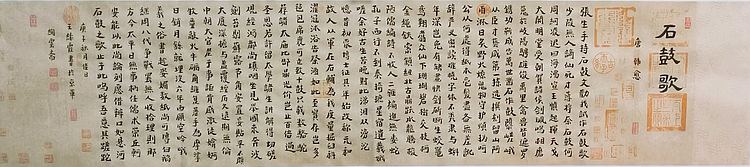 石鼓歌
唐 韓愈
張生手持石鼓文勸我試作石鼓歌
少陵無人謫仙死才薄將奈石鼓何
周綱陵遲四海沸宣王憤起揮天戈
大開明堂受朝賀諸侯劍佩鳴相磨
蒐于岐陽騁雄俊萬里禽獸皆遮羅
鐫功勒成告萬世鑿石作鼓隳嵯峨
從臣才藝咸第一揀選撰刻留山阿
雨淋日炙野火燎鬼物守護煩撝呵
公從何處得紙本毫髮盡備無差訛
辭嚴義密讀難曉字體不類隸與蝌
年深豈免有缺畫快劍斫斷生蛟鼉
鸞翔鳳翥眾仙下珊瑚碧樹交枝柯
金繩鐵索鎖鈕壯古鼎躍水龍騰梭
陋儒編詩不收入二雅褊迫無委蛇
孔子西行不到秦掎摭星宿遺羲娥
嗟余好古生苦晚對此涕淚雙滂沱
憶昔初蒙博士徵其年始改稱元和
故人從軍在右輔為我度量掘臼科
濯冠沐浴告祭酒如此至寶存豈多
氈包席裹可立致十鼓只載數駱駝
薦諸太廟比郜鼎光價豈止百倍過
聖恩若許留太學諸生講解得切磋
觀經鴻都尚填咽坐見舉國來奔波
剜苔剔蘚露節角安置妥帖平不頗
大廈深簷與蓋覆經歷久遠期無佗
中朝大官老於事詎肯感激徒媕婀
牧童敲火牛礪角誰復著手為摩挲
日銷月鑠就埋沒六年西顧空吟哦
羲之俗書趁姿媚數紙尚可博白鵝
繼周八代爭戰罷無人收拾理則那
方今太平日無事柄任儒術崇丘軻
安能以此尚論列願借辯口如懸河
石鼓之歌止於此嗚呼吾意其蹉跎
書於京華